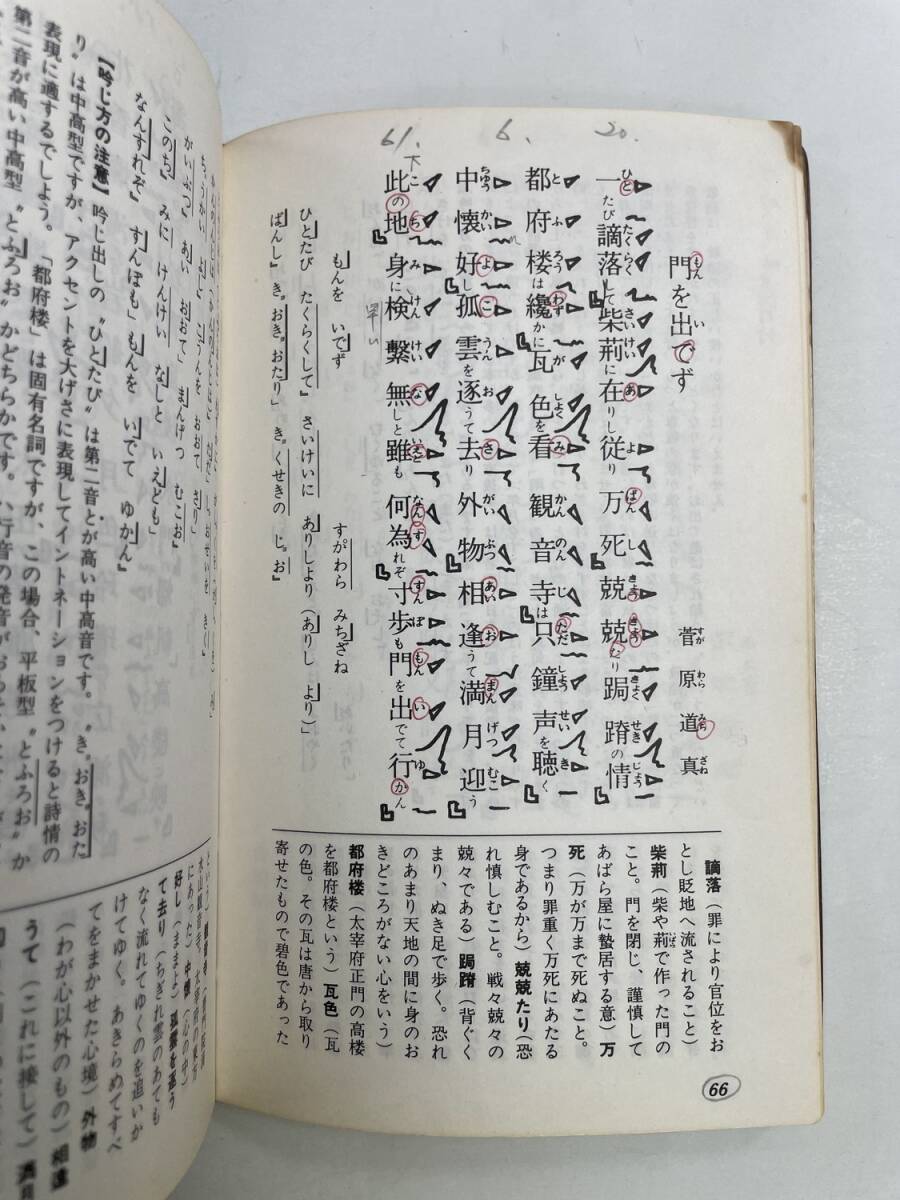 20.
6.
61.
門を出でず
菅原道真
一たび謫落して柴荊に在りし従り万死兢兢たり跼蹐の情
都府楼は纔かに瓦色を看観音寺は只鐘声を聴く
中懐好し孤雲を逐うて去り外物相逢うて満月迎う
此の地身に検繋無しと雖も何為れぞ寸歩も門を出でて行かん
下
もんを いでず
すがわら みちざね
ひとたび たくらくして さいけいに ありしより(ありし より)
ばんし き゚おき゚おたり き゚くせきの じ゚お
謫落(罪により官位をお
とし貶地へ流されること)
柴荊(柴や荊で作った門の
こと。門を閉じ、謹慎して
あばら屋に蟄居する意)万
死(万が万まで死ぬこと。
つまり罪重く万死にあたる
身であるから)兢兢たり(恐
れ慎しむこと。戦々兢々の
兢々である)跼蹐(背ぐく
まり、ぬき足で歩く。恐れ
のあまり天地の間に身のお
きどころがない心をいう)
都府楼(太宰府正門の高楼
を都府楼という)瓦色(瓦
の色。その瓦は唐から取り
寄せたもので碧色であった
66
ちゅうかい よし こうんを おおて さり
がいぶつ あい おおて まんげつ むこお
このち みに けんけい なしと いえども
なんすれぞ すんぽも もんを いでて ゆかん』
【吟じ方の注意】吟じ出しの〝ひとたび〟は第二音とが高い中高音です。〝き゚おき゚おた
り〟は中高型ですが、アクセントを大げさに表現してイントネーションをつけると詩情の
表現に適するでしよう。「都府楼」は固有名詞ですが、この場合、平板型〝とふろお〟か
第二音が高い中高型〝とふろお〟かどちらかです。
好し(ままよ)孤雲を逐う
て去り(ちぎれ雲のあても
なく流れてゆくのを追いか
けてゆく。あきらめてすべ
てをまかせた心境)外物
(わが心以外のもの)相逢
うて(これに接して)満月